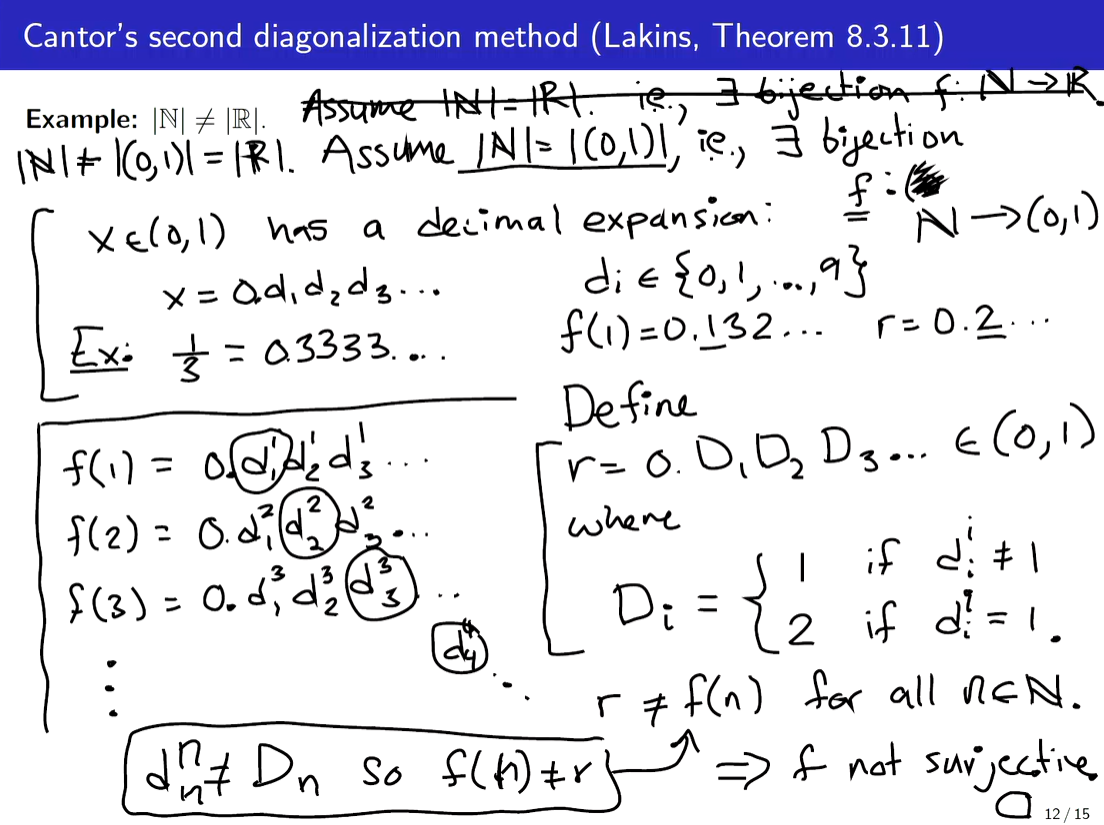 Cantor's second diagonalization method (Lakins, Theorem 8.3.11)
Assume |ℕ|=|ℝ|. ie., ∃ bijection f: ℕ→ℝ
Example: |ℕ| ≠ |ℝ|.
|ℕ| ≠ |(0,1)| = |ℝ|. Assume |ℕ|=|(0,1)|, ie., ∃ bijection
f: ℕ→(0,1)
x∈(0,1) has a decimal expansion:
x = 0.d₁d₂d₃... dᵢ ∈ {0,1,...,9}
Ex: 1/3 = 0.3333....
f(1)=0.132... r=0.2...
f(1) = 0.d₁¹d₂¹d₃¹...
f(2) = 0.d₁²d₂²d₃²...
f(3) = 0.d₁³d₂³d₃³...
d₄⁴
⋮
Define
r = 0.D₁D₂D₃... ∈ (0,1)
where
Dᵢ = { 1 if dᵢⁱ ≠ 1
2 if dᵢⁱ = 1.
r ≠ f(n) for all n∈ℕ.
dₙⁿ ≠ Dₙ so f(n) ≠ r
⟹ f not surjective.
□
12 / 15